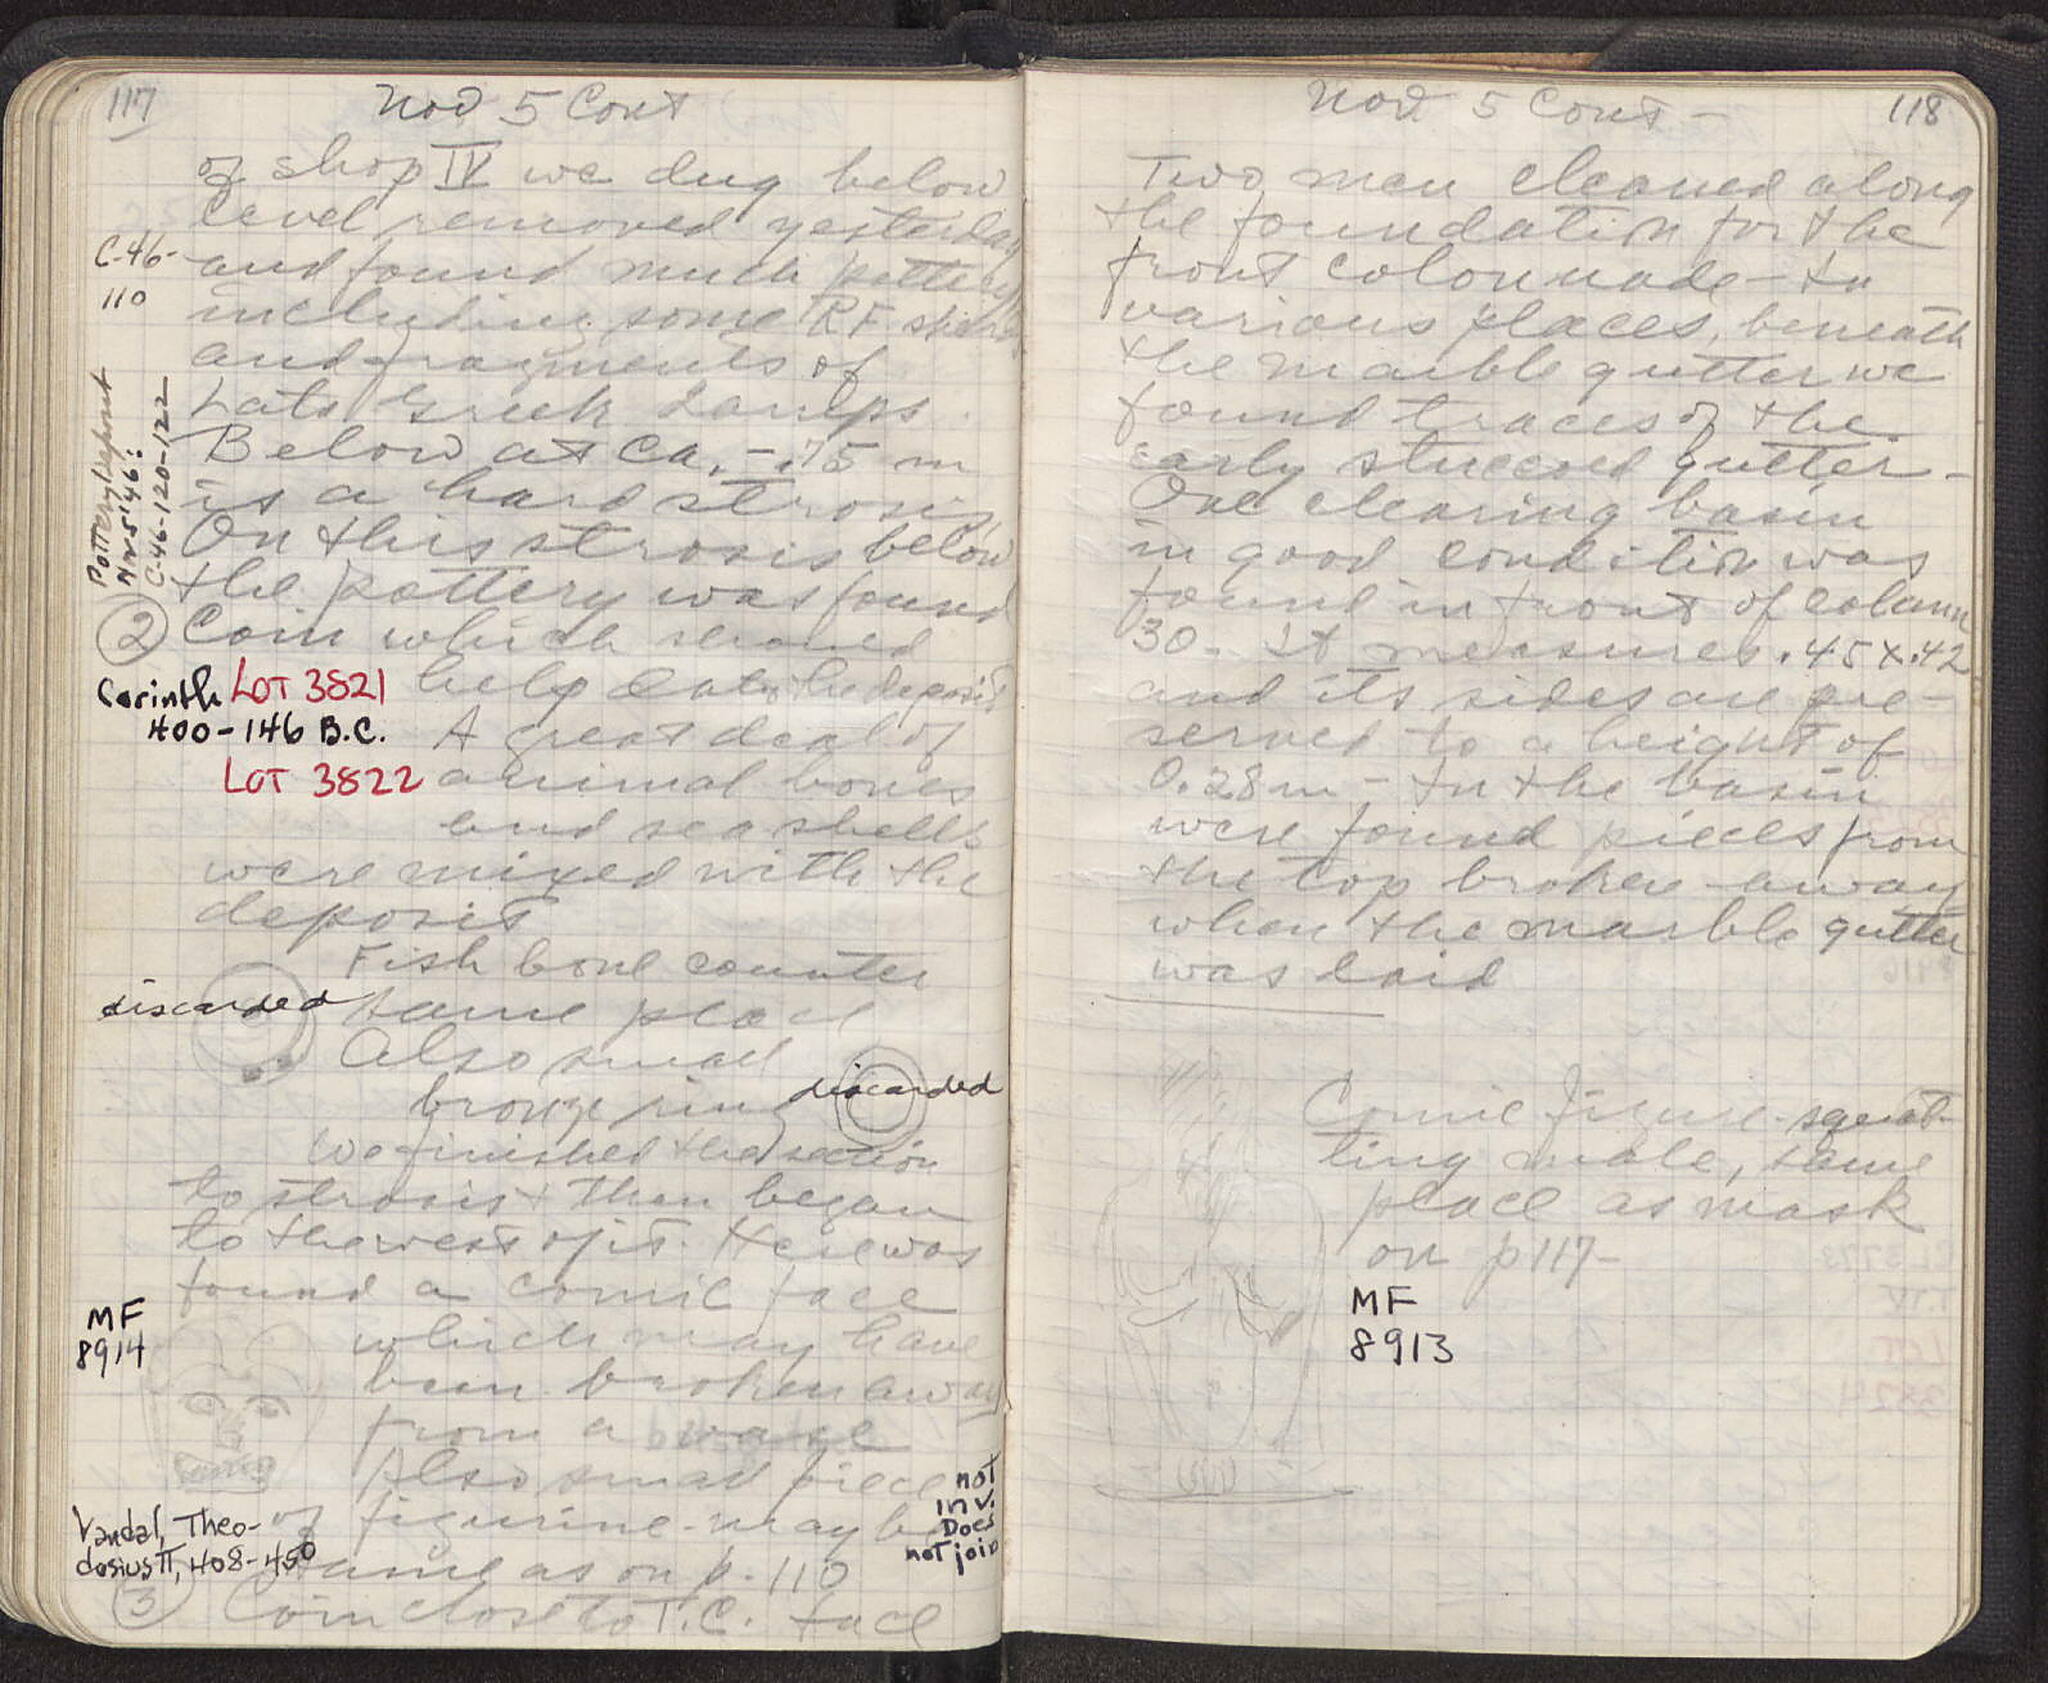 117
Nov 5 Cont
of shop IV we dug below
level removed yesterday
C-46-
110
and found much pottery
including some RF sherds
and fragments of
Late Greek Lamps.
Pottery deposit
Nov 5 '46:
C-46-120-122
Below at ca. -.75 m
is a hard strosis
On this strosis below
the pottery was found
② Coin which should
help date the deposit
Corinth LOT 3821
400-146 B.C.
LOT 3822
A great deal of
animal bones
and sea shells
were mixed with the
deposit
Fish bone counter
discarded
same place
Also small
bronze ring
discarded
We finished the section
to strosis + then began
to the west of it. Here was
found a comic face
MF
8914
which may have
been broken away
from a vase
Also small piece
of figurine - may be
same as on p. 110
not
inv.
Does
not join
Vandal, Theo-
dosius II, 408-450
③ Coin close to T.C. face
118
Nov 5 Cont -
Two men cleaned along
the foundation for the
front colonnade - In
various places, beneath
the marble gutter we
found traces of the
early stuccoed gutter -
One clearing basin
in good condition was
found in front of column
30. It measures .45 x .42
and its sides are pre-
served to a height of
0.28 m - In the basin
were found pieces from
the top broken away
when the marble gutter
was laid
Comic figure - squat-
ting male, same
place as mask
on p 117 -
MF
8913